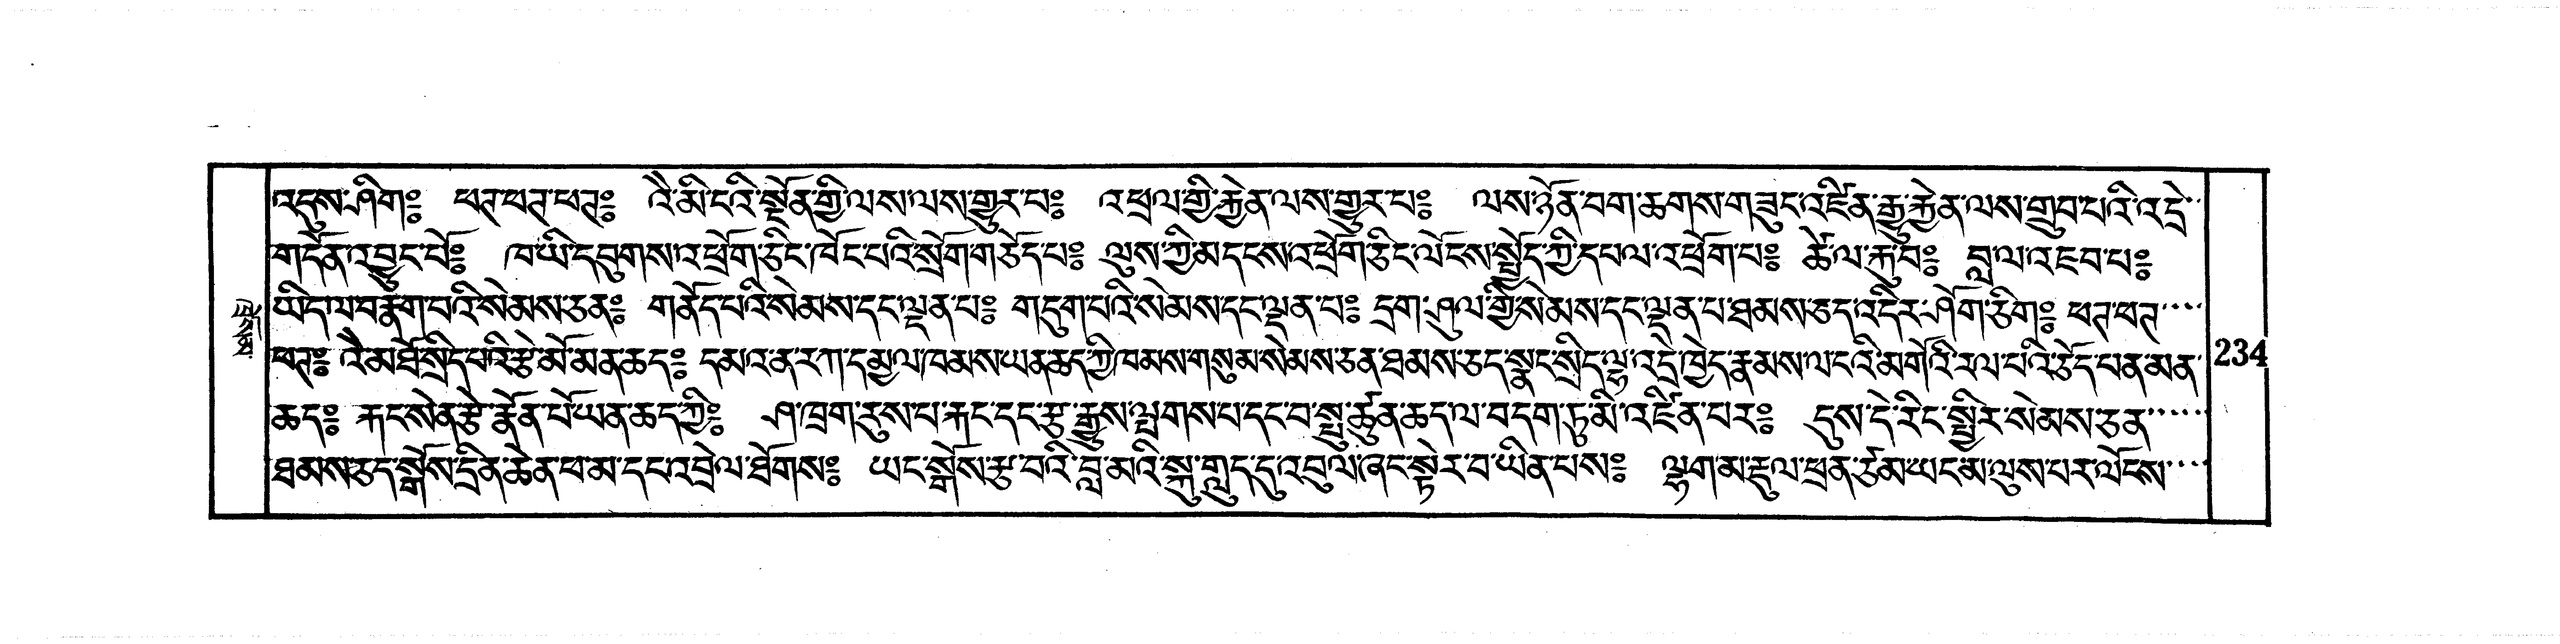 འདུས་ཤིག༔ ཕཊ་ཕཊ་ཕཊ༔ འི་མི་ངའི་སྔོན་གྱི་ལས་ལས་གྱུར་པ༔ འཕྲལ་གྱི་རྐྱེན་ལས་གྱུར་པ༔ ལས་ཉོན་བག་ཆགས་གཟུང་འཛིན་རྒྱུ་རྐྱེན་ལས་གྲུབ་པའི་འདྲེ་
གདོན་འབྱུང་པོ༔ ཁ་ཡི་དབུགས་འཕྲོག་ཅིང་ཁོང་པའི་སྲོག་གཅོད་པ༔ ལུས་ཀྱི་མདངས་འཕྲོག་ཅིང་ལོངས་སྤྱོད་ཀྱི་དཔལ་འཕྲོག་པ༔ ཚེ་ལ་རྐུ་བ༔ བླ་ལ་འཇབ་པ༔
ཡིད་ལ་བརྣོག་པའི་སེམས་ཅན༔ གནོད་པའི་སེམས་དང་ལྡན་པ༔ གདུག་པའི་སེམས་དང་ལྡན་པ༔ དྲག་ཤུལ་གྱི་སེམས་དང་ལྡན་པ་ཐམས་ཅད་འདིར་ཤོག་ཅིག༔ ཕཊ་ཕཊ་
ཕཊ༔ འི་མ་ཐོ་སྲིད་པའི་རྩེ་མོ་མན་ཆད༔ དམའ་ན་རཀ་དམྱལ་ཁམས་ཡན་ཆད་ཀྱི་ཁམས་གསུམ་སེམས་ཅན་ཐམས་ཅད་སྣང་སྲིད་ལྷ་འདྲེ་ཁྱེད་རྣམས་ལ་ངའི་མགོའི་རལ་པའི་ཅོད་པན་མན་
ཆད༔ རྐང་སེན་རྩེ་རྣོན་པོ་ཡན་ཆད་ཀྱི༔ ཤ་ཁྲག་རུས་པ་རྐང་དང་རྩ་རྒྱུས་ལྤགས་པ་དང་བ་སྤུ་ཚུན་ཆད་ལ་བདག་ཏུ་མི་འཛིན་པར༔ དུས་དེ་རིང་སྤྱིར་སེམས་ཅན་
ཐམས་ཅད་སྒོས་དྲིན་ཆེན་ཕ་མ་དང་འབྲེལ་ཐོགས༔ ཡང་སྒོས་རྩ་བའི་བླ་མའི་སྐུ་གླུད་དུ་འབུལ་ཞིང་སྟེར་བ་ཡིན་པས༔ ལྷག་མ་རྡུལ་ཕྲན་ཙམ་ཡང་མ་ལུས་པར་ལོངས་
234